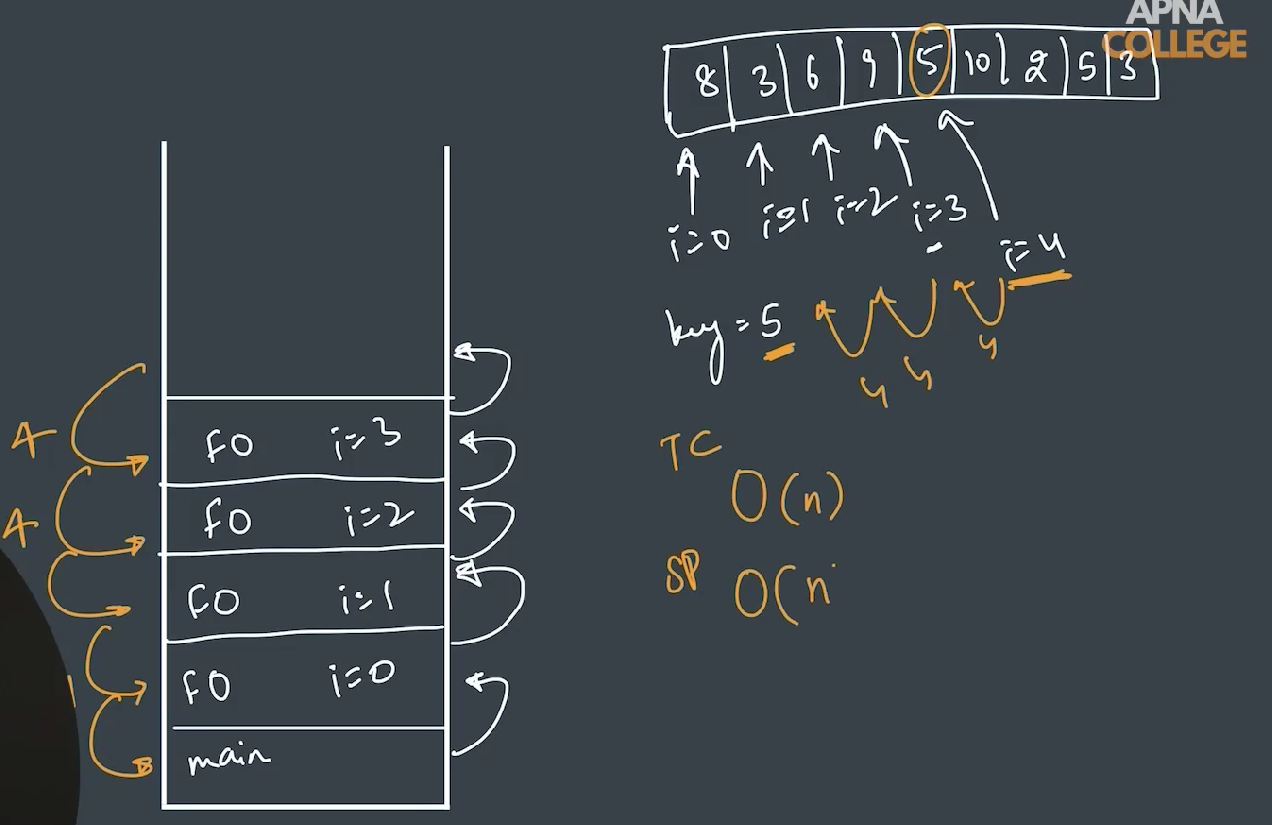 APNA
COLLEGE
8 3 6 9 5 10 2 5 3
i=0 i=1 i=2 i=3
i=4
key = 5
4 4 4
TC
O(n)
SP O(n
4
4
f() i=3
f() i=2
f() i=1
f() i=0
main